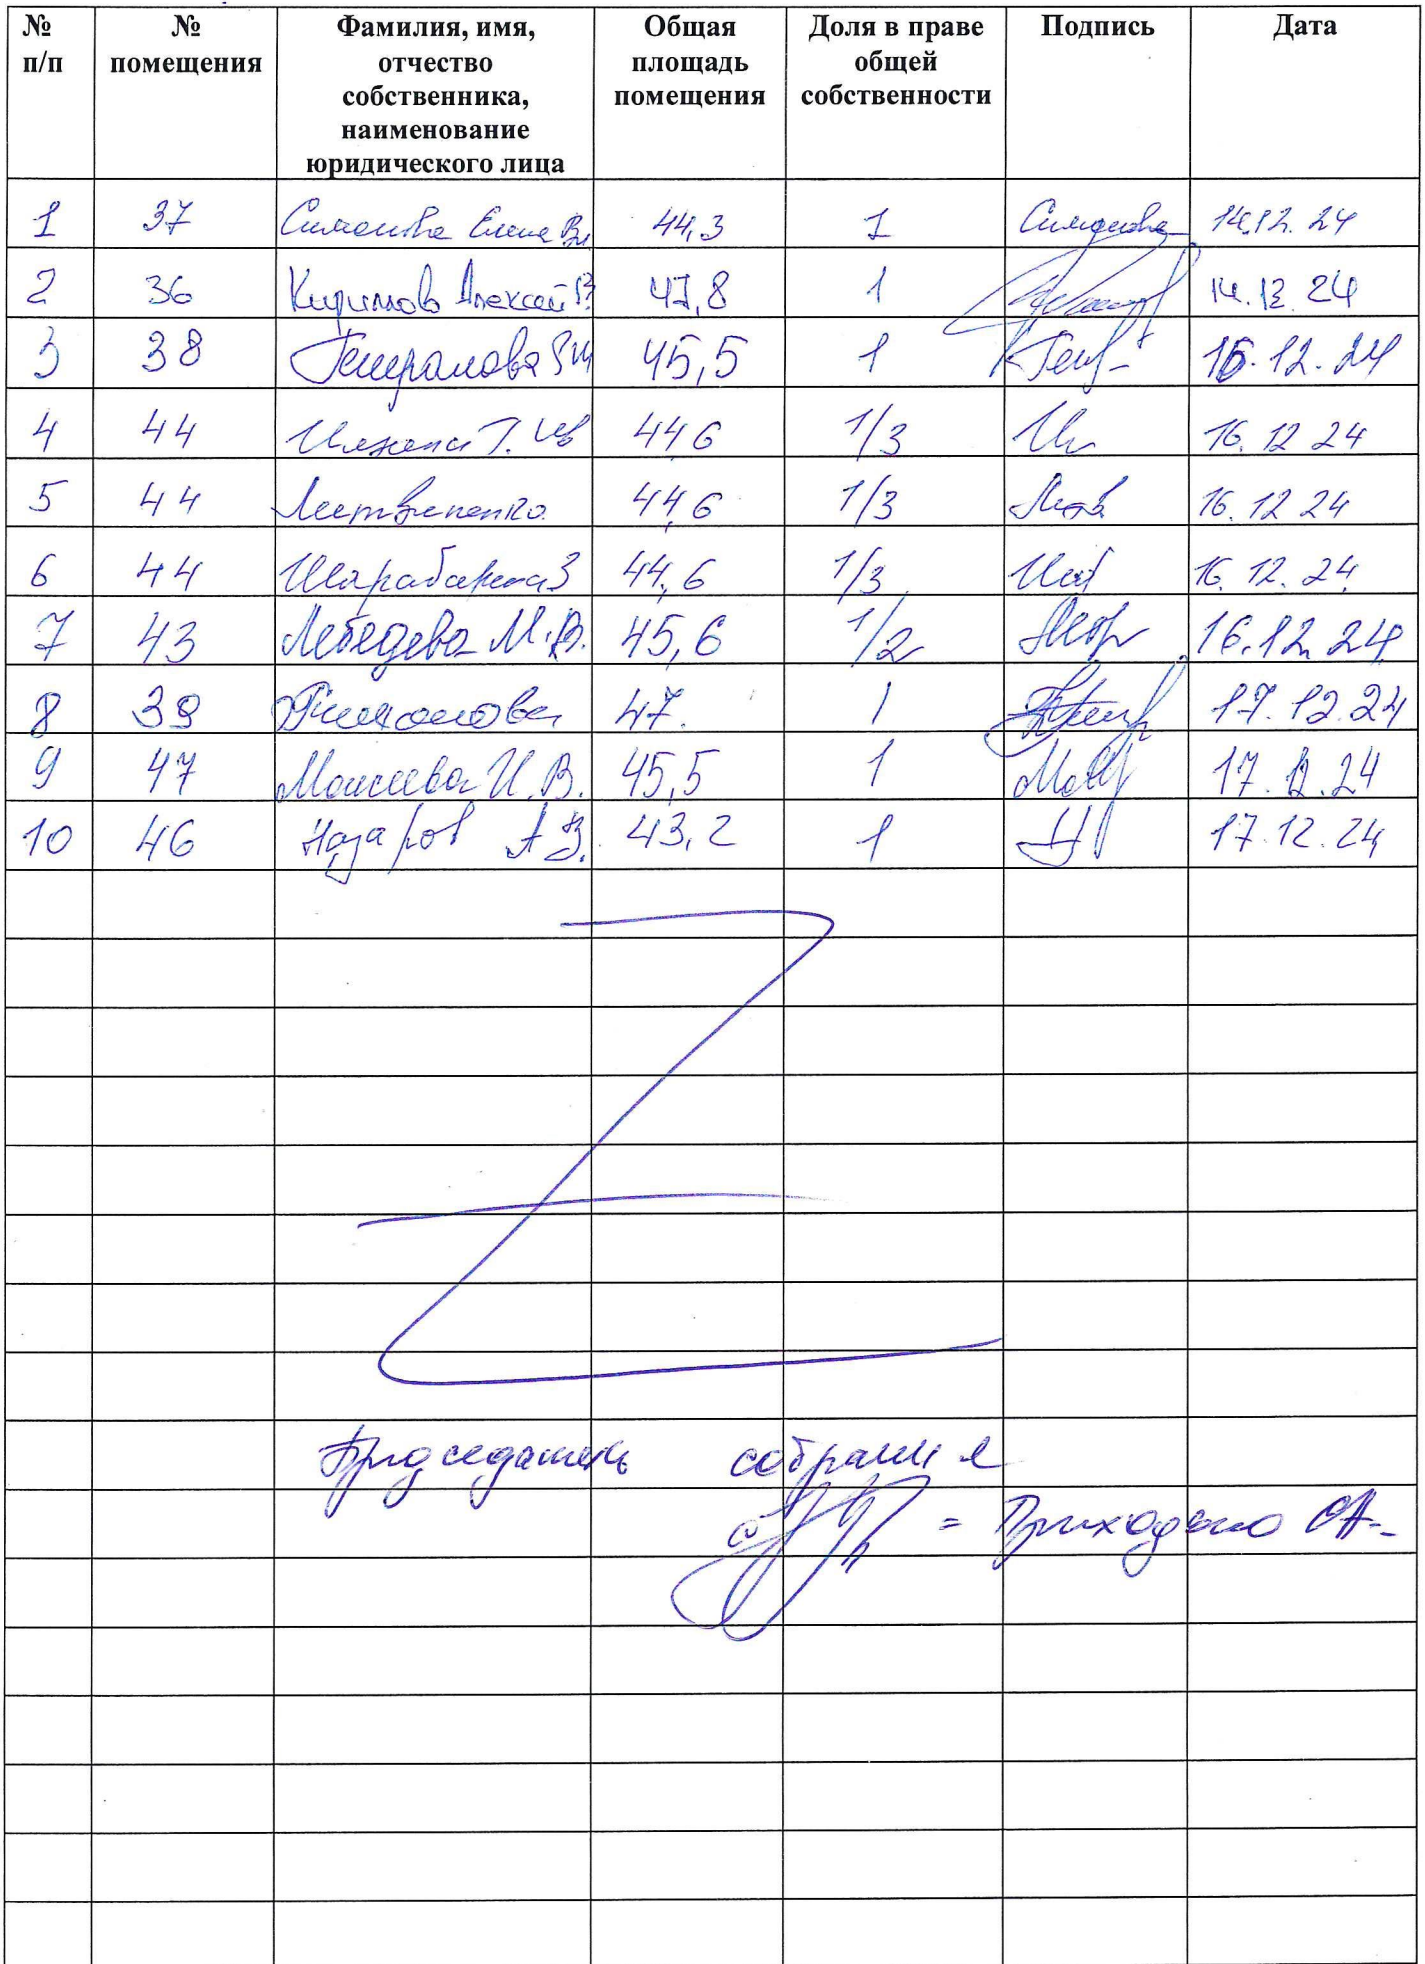 № п/п № помещения Фамилия, имя, отчество собственника, наименование юридического лица Общая площадь помещения Доля в праве общей собственности Подпись Дата
1 37 Симонова Елена Вл. 44,3 1 Симонова 14.12.24
2 36 Кириллов Алексей В 47,8 1 14.12.24
3 38 Генералова 45,5 1 16.12.24
4 44 44,6 1/3 16.12 24
5 44 Литвиненко 44,6 1/3 16.12 24
6 44 44,6 1/3 16.12.24
7 43 Лебедева М.В. 45,6 1/2 16.12.24
8 39 Тихонова 47. 1 17.12.24
9 47 Моисеева И.В. 45,5 1 17.12.24
10 46 Назаров А В. 43,2 1 17.12.24
Председатель собрания
= Приходько